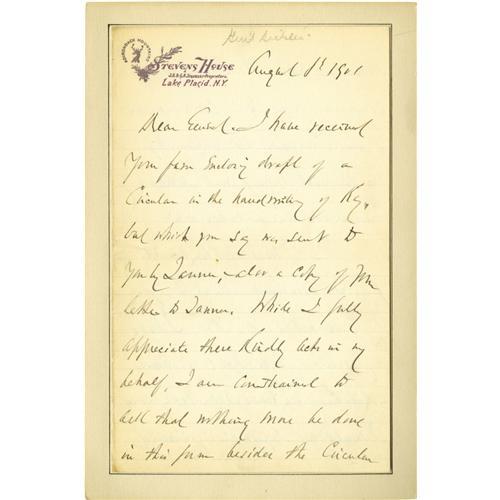 Genl Sickles.
ADIRONDACK MOUNTAINS
STEVENS HOUSE
J.A. & G.A. Stevens Proprietors.
Lake Placid. N.Y.
August 1st 1901
Dear General. I have received
your favor enclosing draft of a
Circular in the handwriting of Kay,
but which you say was sent to
you by Tanner, also a copy of your
letter to Tanner. While I fully
appreciate these kindly acts in my
behalf, I am constrained to
ask that nothing more be done
in this form besides the Circular